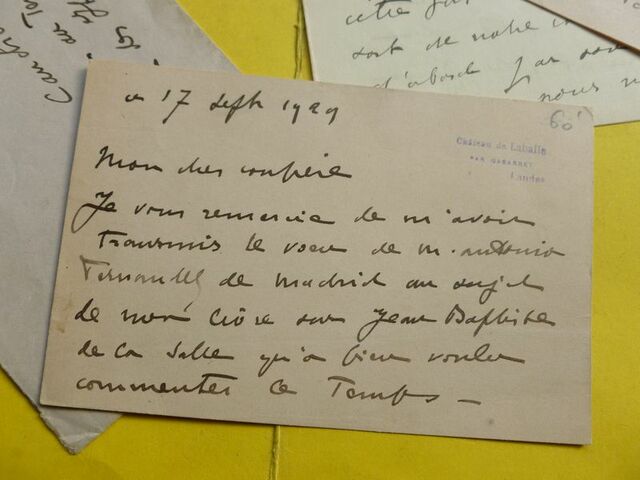 a 17 sept 1929
60
Château de Laballe
PAR GABARRET
Landes
Mon cher confrère
Je vous remercie de m'avoir
transmis le voeu de M. Antonio
Fernandez de Madrid au sujet
de mon livre sur Jean Baptiste
de la Salle qu'a bien voulu
commenter le Temps —
sort de notre
d'abord j'ai
nous
au